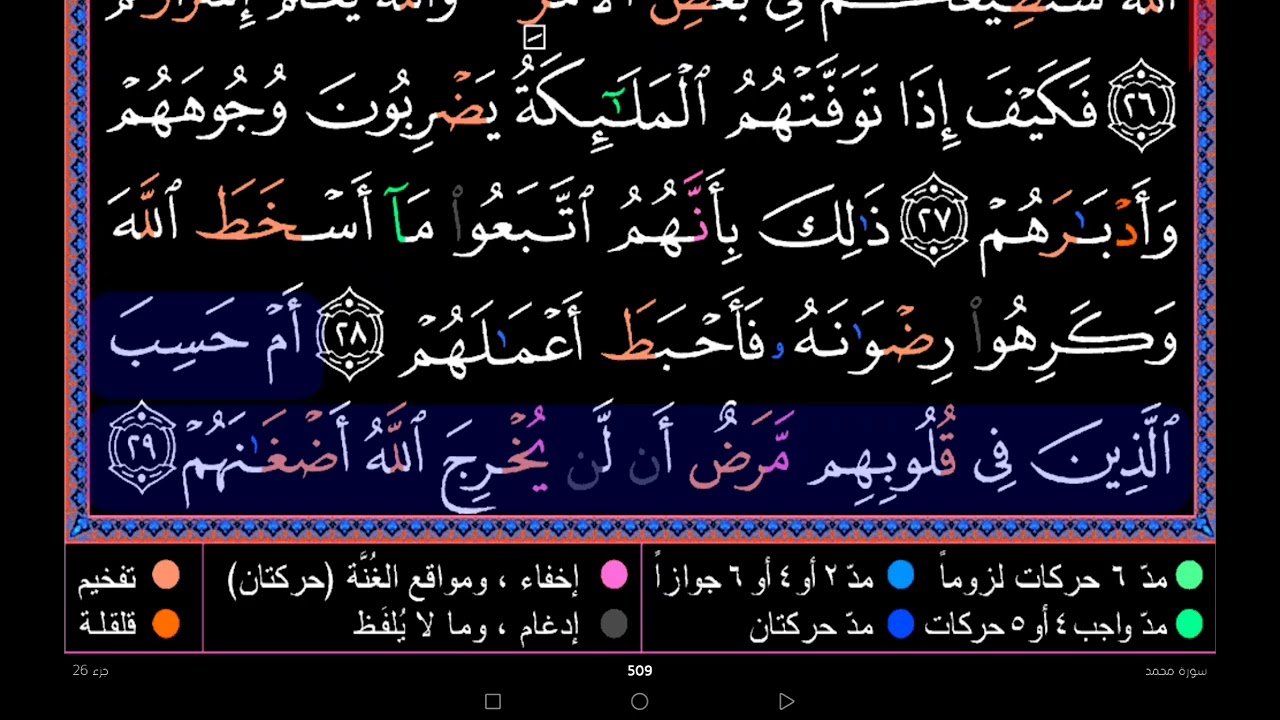 ٱللَّهُ سَنُطِيعُكُمْ فِى بَعْضِ ٱلْأَمْرِ وَٱللَّهُ يَعْلَمُ إِسْرَارَهُمْ
٢٦ فَكَيْفَ إِذَا تَوَفَّتْهُمُ ٱلْمَلَـٰٓئِكَةُ يَضْرِبُونَ وُجُوهَهُمْ
وَأَدْبَـٰرَهُمْ ٢٧ ذَٰلِكَ بِأَنَّهُمُ ٱتَّبَعُوا۟ مَآ أَسْخَطَ ٱللَّهَ
وَكَرِهُوا۟ رِضْوَٰنَهُۥ فَأَحْبَطَ أَعْمَـٰلَهُمْ ٢٨ أَمْ حَسِبَ
ٱلَّذِينَ فِى قُلُوبِهِم مَّرَضٌ أَن لَّن يُخْرِجَ ٱللَّهُ أَضْغَـٰنَهُمْ ٢٩
مدّ ٦ حركات لزوماً مدّ ٢ أو ٤ أو ٦ جوازاً إخفاء ، ومواقع الغُنَّة (حركتان) تفخيم
مدّ واجب ٤ أو ٥ حركات مدّ حركتان إدغام ، وما لا يُلفَظ قلقلة
سورة محمد 509 جزء 26